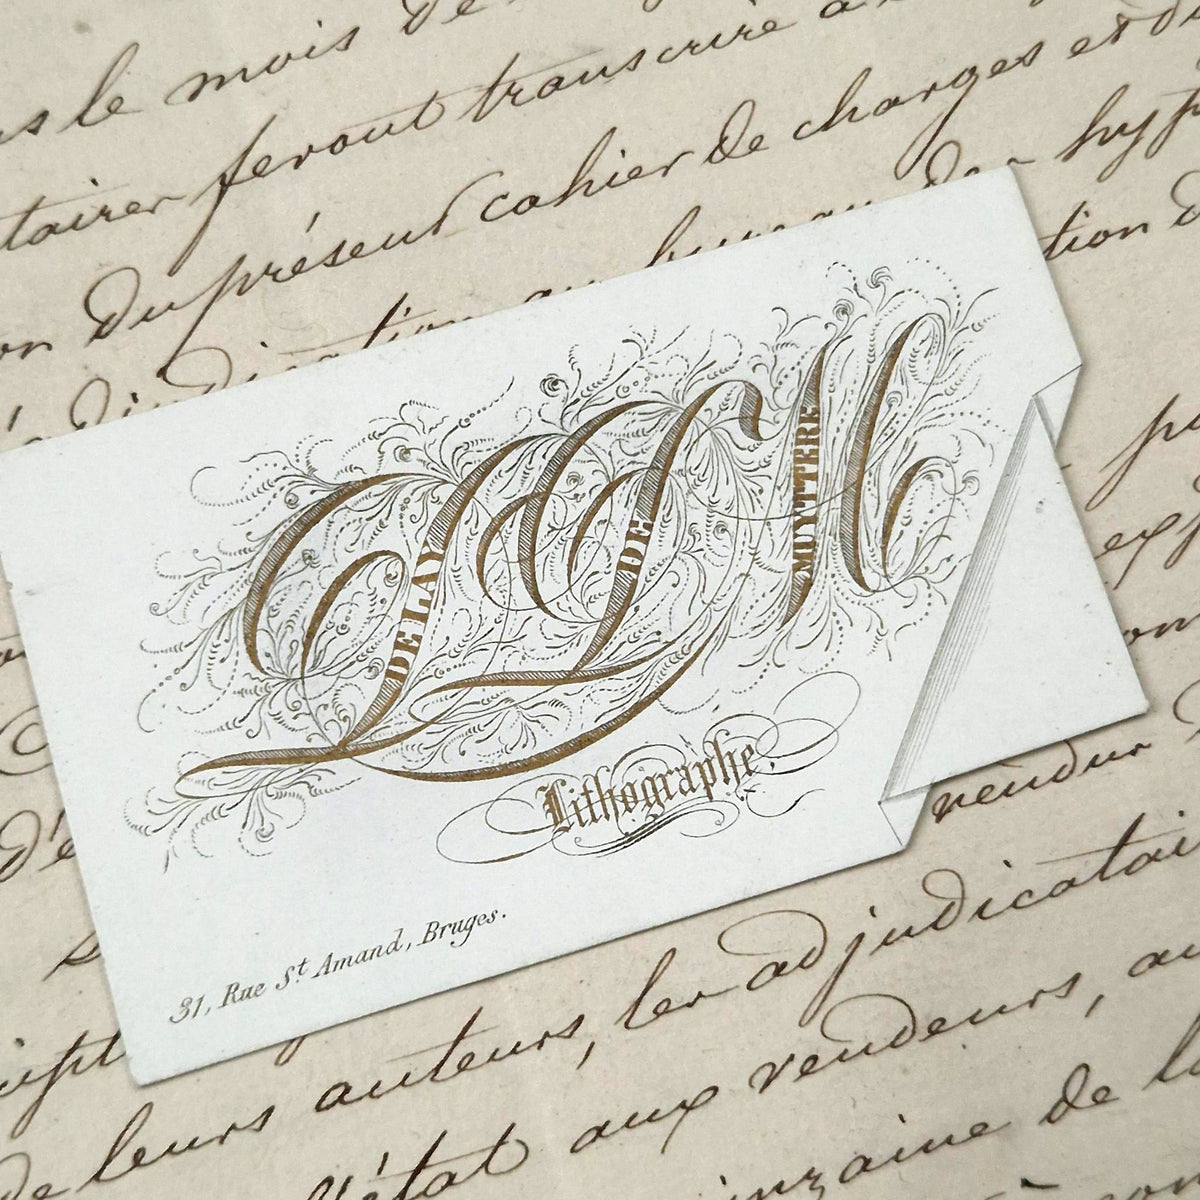 le mois de
feront transcrire
Du présent cahier de charges et
tion
DDM
DELAY
DE
MUYTTERE
Lithographe.
31, Rue St. Amand, Bruges.
rendur
de leurs auteurs, les adjudicatai
l'état aux vendeurs, au
de la